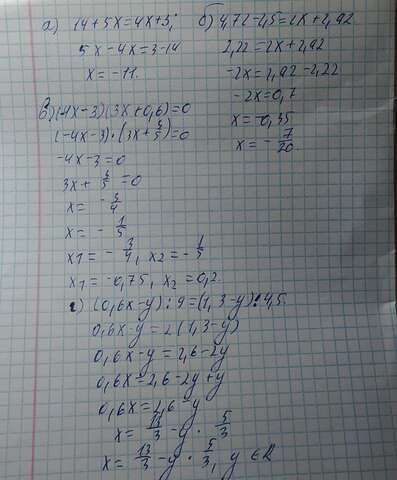 а) 14+5x=4x+3;
5x-4x=3-14
x=-11.
б) 4,72-2,5=2x+2,92
2,22=2x+2,92
-2x=2,92-2,22
-2x=0,7
x=-0,35
x=-7/20.
в) (-4x-3)(3x+0,6)=0
(-4x-3)·(3x+3/5)=0
-4x-3=0
3x+3/5=0
x=-3/4
x=-1/5
x1=-3/4, x2=-1/5
x1=-0,75, x2=0,2.
г) (0,6x-y):9=(1,3-y):4,5.
0,6x-y=2(1,3-y)
0,6x-y=2,6-2y
0,6x=2,6-2y+y
0,6x=2,6-y
x=13/3-y·5/3
x=13/3-y·5/3, y∈R